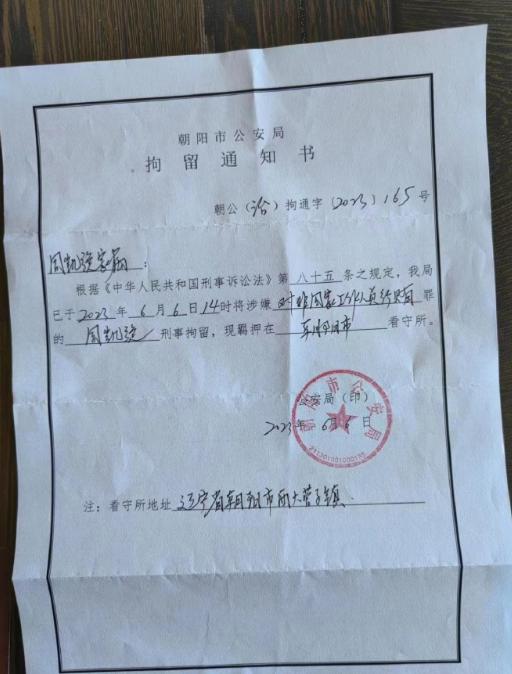 朝阳市公安局
拘留通知书
朝公（治）拘通字〔2023〕165号
周凯旋家属：
根据《中华人民共和国刑事诉讼法》第八十五条之规定，我局
已于2023年6月6日14时将涉嫌对非国家工作人员行贿罪
的周凯旋刑事拘留，现羁押在朝阳市看守所。
公安局（印）
2023年6月6日
朝阳市公安局
注：看守所地址辽宁省朝阳市西大营子镇